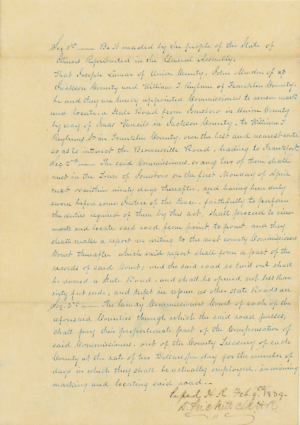 Sec 1st — Be it enacted by the people of the State of
Illinois Represented in the General Assembly,
That Joseph Lamar of Union County, John of
Jackson County and William T. of Franklin County,
be and they are hereby appointed Commissioners to review mark
and locate a State Road from Jonesboro in Union County
by way of in Jackson County, to William T.
in Franklin County, over the best and nearest route
so as to intersect the Road, leading to Frankfort
Sec 2nd — The said Commissioners, or any two of them shall
meet in the Town of Jonesboro on the first Monday of April
next or within ninety days thereafter, and having been duly
sworn before some Justice of the Peace, faithfully to perform
the duties required of them by this act, shall proceed to view
mark and locate said road from point to point and they
shall make a report in writing to the next county Commissioners
Court thereafter which said report shall form a part of the
records of said Court, and the said road so laid out shall
be deemed a State Road, and shall be opened not less than
feet wide, and kept in repair as other state Roads are
Sec 3rd — The County Commissioners Court of each of the
aforesaid Counties through which the said road passes,
shall pay their proportionate part of the Compensation of
said Commissioners, out of the County Treasury of each
County at the rate of two Dollars per day for the number of
days in which they shall be actually employed, in viewing
marking and locating said road.
H. R. Feb. 9th 1839.
D. Prickett Clk H R